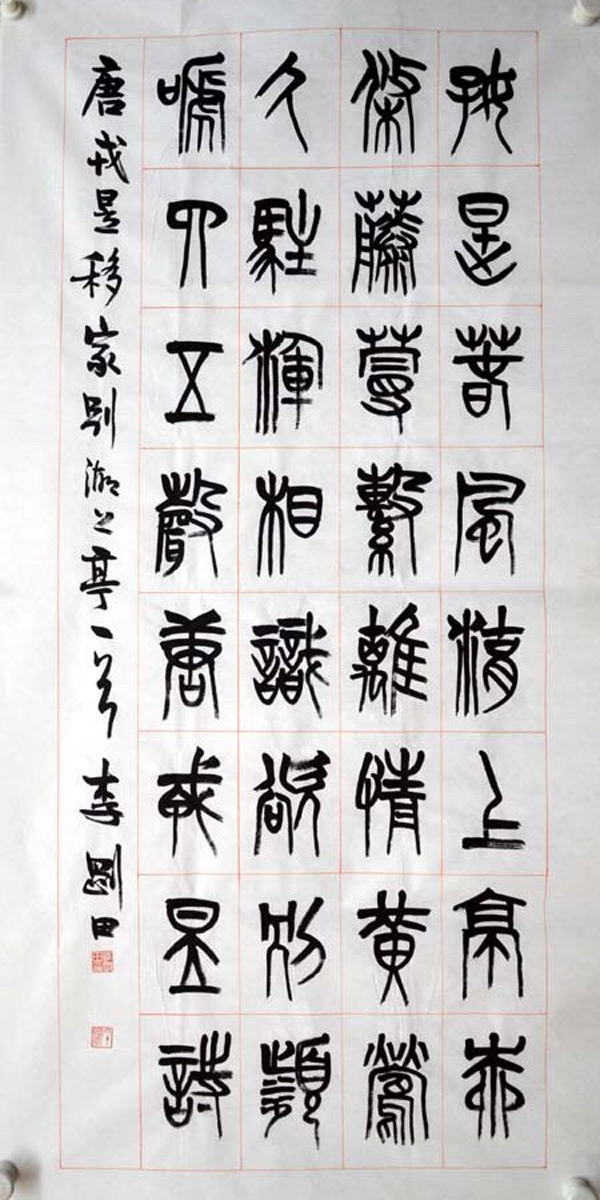 好是春風湖上亭柳
條藤蔓繫離情黃鶯
久駐渾相識欲別頻
嗁四五聲唐戎昱詩
唐戎昱移家別湖上亭一首 李剛田